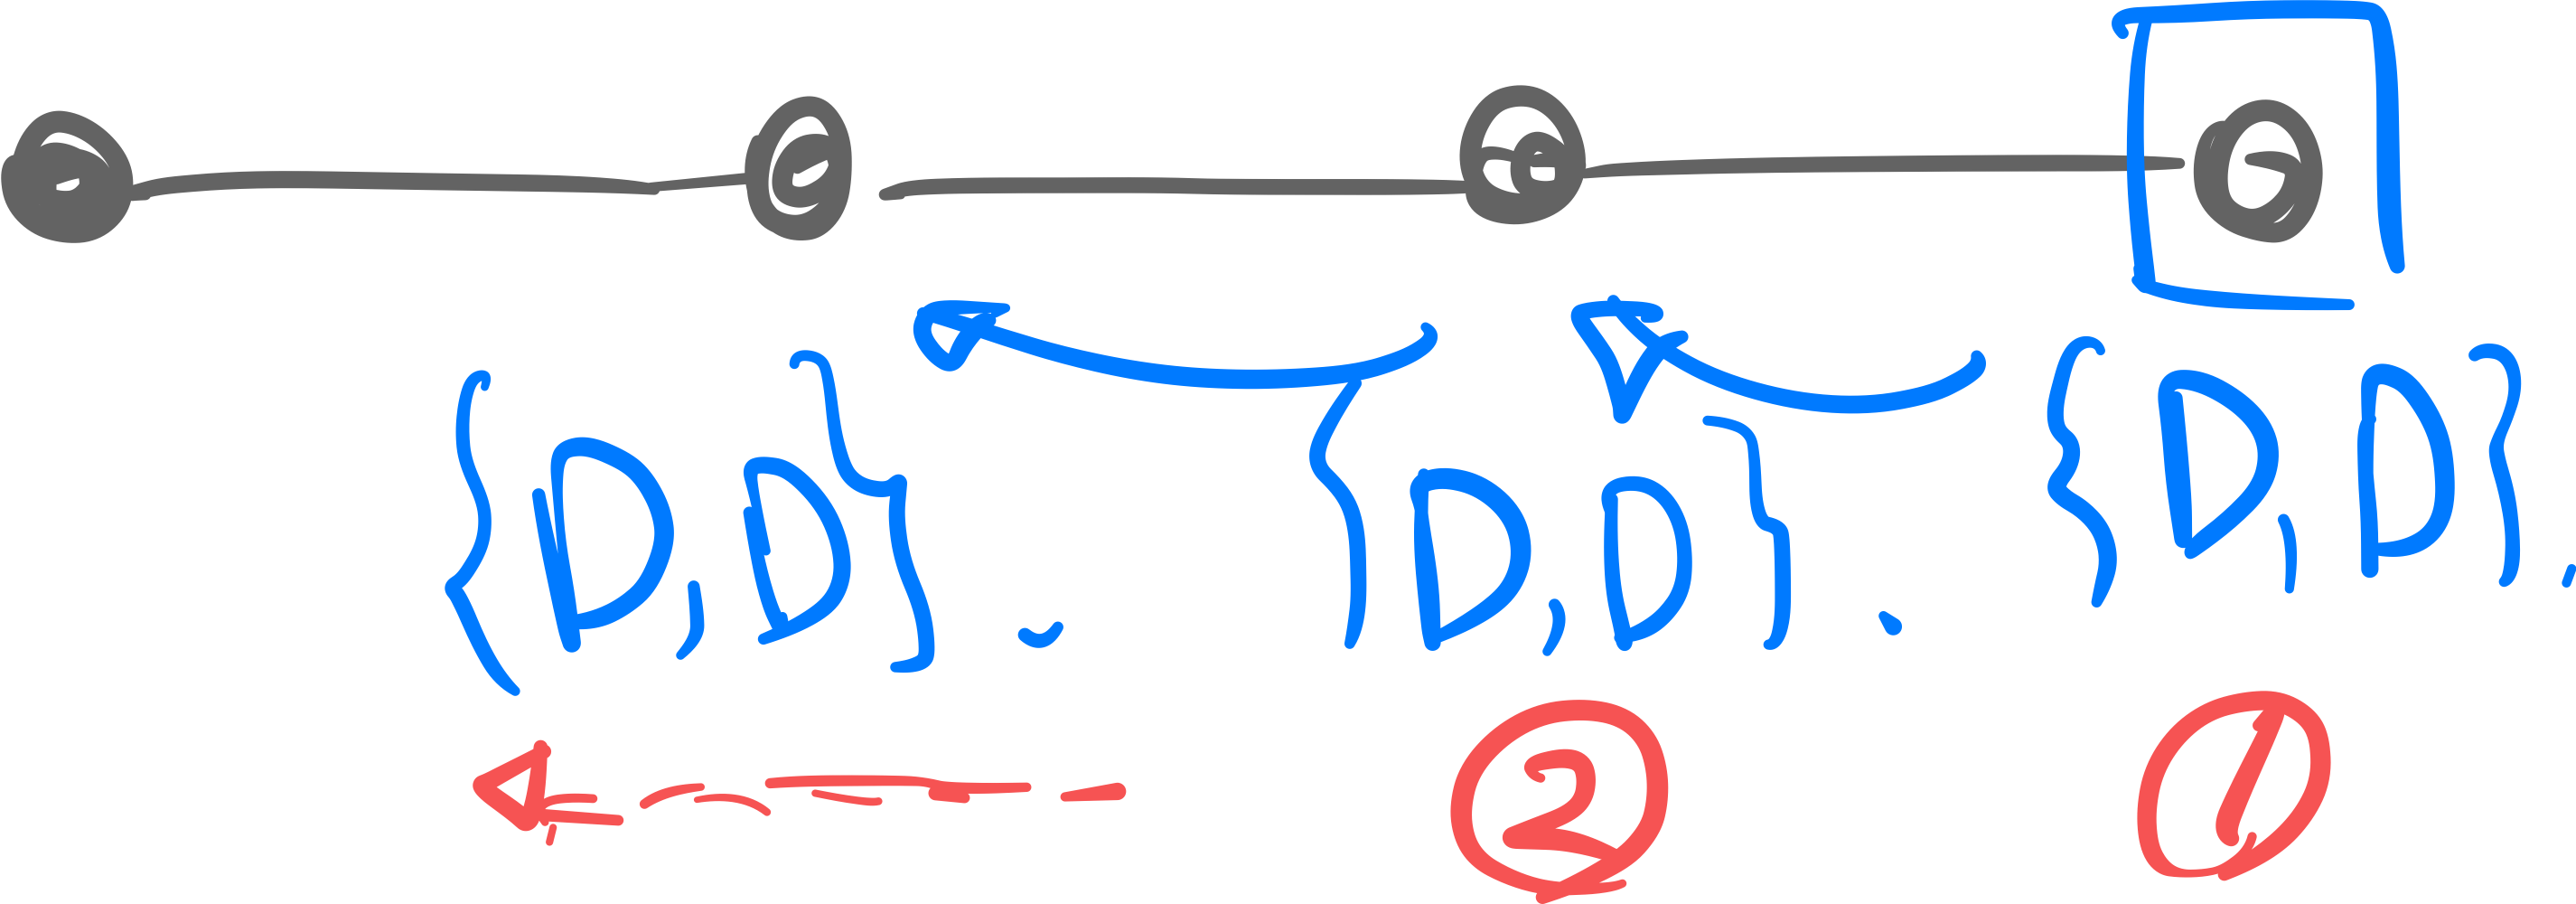 {D, D}. {D, D}. {D, D}.
2 1